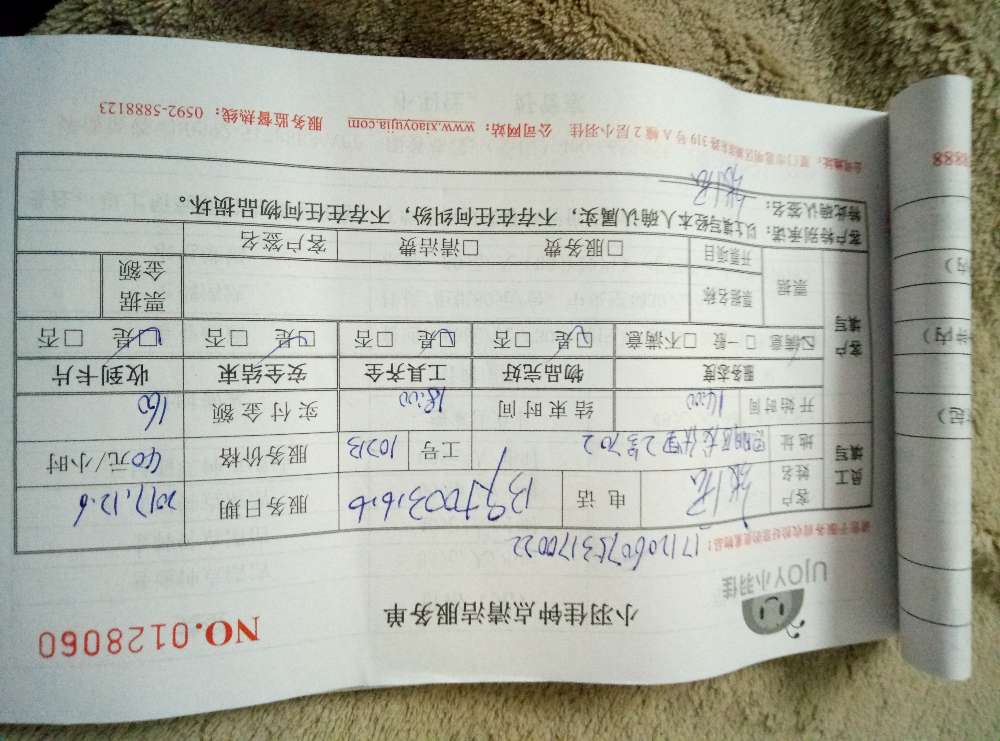 UJOY小羽佳
小羽佳钟点清洁服务单
NO.0128060
请您于服务前收拾好您的贵重物品：
客户姓名 电话 服务日期 2017.12.6
地址 工号 服务价格 40元/小时
开始时间 14:00 结束时间 18:00 实付金额 160
员工填写
服务态度 物品完好 工具齐全 安全结束 收到卡片
☑满意 □一般 □不满意 ☑是 □否 ☑是 □否 ☑是 □否 ☑是 □否
客户填写
票据 票据名称 票据金额
开票项目 □服务费 □清洁费 客户签名
客户特别承诺：以上填写经本人确认属实，不存在任何纠纷，不存在任何物品损坏。
特此确认签名：
公司网站：www.xiaoyujia.com 服务监督热线：0592-5888123